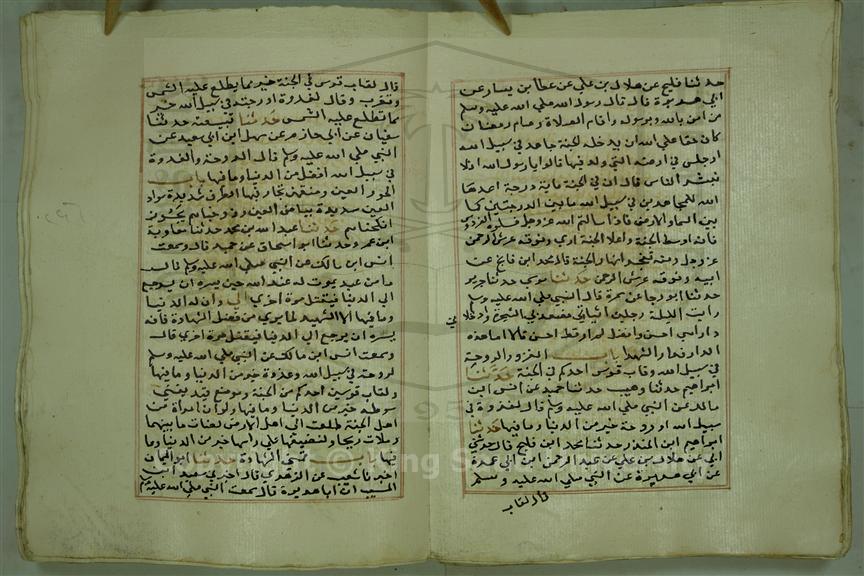 حدثنا فليح عن هلال بن علي عن عطا بن يسار عن
ابي هريرة قال قال رسول الله صلى الله عليه وسلم
من امن بالله وبرسوله واقام الصلاة وصام رمضان
كان حقا على الله ان يدخله الجنة جاهد في سبيل الله
اوجلس في ارضه التي ولد فيها قالوا يا رسول الله افلا
نبشر الناس قال ان في الجنة ماية درجة اعدها
الله للمجاهدين في سبيل الله ما بين الدرجتين كما
بين السما والارض فاذا سالتم الله عز وجل فسلوه الفردوس
فانه اوسط الجنة واعلا الجنة اري وفوقه عرش الرحمن
عز وجل ومنه تفجر انهار الجنة قال محمد ابن فليح عن
ابيه وفوقه عرش الرحمن حدثنا موسي حدثنا جرير
حدثنا ابو رجا عن سمرة قال النبي صلى الله عليه وسلم
رايت الليلة رجلين اتياني فصعدا بي الشجرة وادخلا ني
دارا هي احسن وافضل لم ار قط احسن قالا اما هذه
الدار فدار الشهدا باب الغزوة والروحة
في سبيل الله وقاب قوس احدكم في الجنة حدثنا
ابراهيم حدثنا وهيب حدثنا حميد عن انس ابن
مالك عن النبي صلى الله عليه وسلم قال لغدوة في
سبيل الله او روحة خير من الدنيا وما فيها حدثنا
ابراهيم ابن المنذر حدثنا محمد ابن فليح قال حدثني
ابي عن هلال بن علي عن عبد الرحمن ابن ابي عمرة
عن ابي هريرة عن النبي صلى الله عليه وسلم
قال لقاب
قال لقاب قوس في الجنة خير مما يطلع عليه الشمس
وتغرب وقال لغدوة او روحة في سبيل الله خير
مما تطلع عليه الشمس حدثنا قبيصة حدثنا
سفيان عن ابي حازم عن سهل ابن ابي سعيد عن
النبي صلى الله عليه وسلم قال الروحة والغدوة
في سبيل الله افضل من الدنيا وما فيها باب
الحور العين وصفتهن يحار فيها الطرف شديدة سواد
العين شديدة بياض العين وزوجناهم بحور
انكحناهم حدثنا عبد الله بن محمد حدثنا معاوية
ابن عمرو حدثنا ابو اسحاق عن حميد قال وسمعت
انس ابن مالك عن النبي صلى الله عليه وسلم قال
ما من عبد يموت له عند الله خير يسره ان يرجع
الى الدنيا وان له الدنيا
وما فيها الا الشهيد لما يري من فضل الشهادة فانه
يسره ان يرجع الي الدنيا فيقتل مرة اخري قال
وسمعت انس ابن مالك عن النبي صلى الله عليه وسلم
لروحة في سبيل الله وغدوة خير من الدنيا وما فيها
ولقاب قوسين احدكم من الجنة وموضع قيد يعني
سوطه خير من الدنيا وما فيها ولو ان امراة من
اهل الجنة طلعت الى اهل الارض لضات ما بينهما
وملات ريحا ولنصيفها على راسها خير من الدنيا وما
فيها باب تمني الشهادة حدثنا ابو اليمان
اخبرنا شعيب عن الزهري قال اخبرني سعيد ابن
المسيب ان ابا هريرة قال سمعت النبي صلى الله عليه وسلم